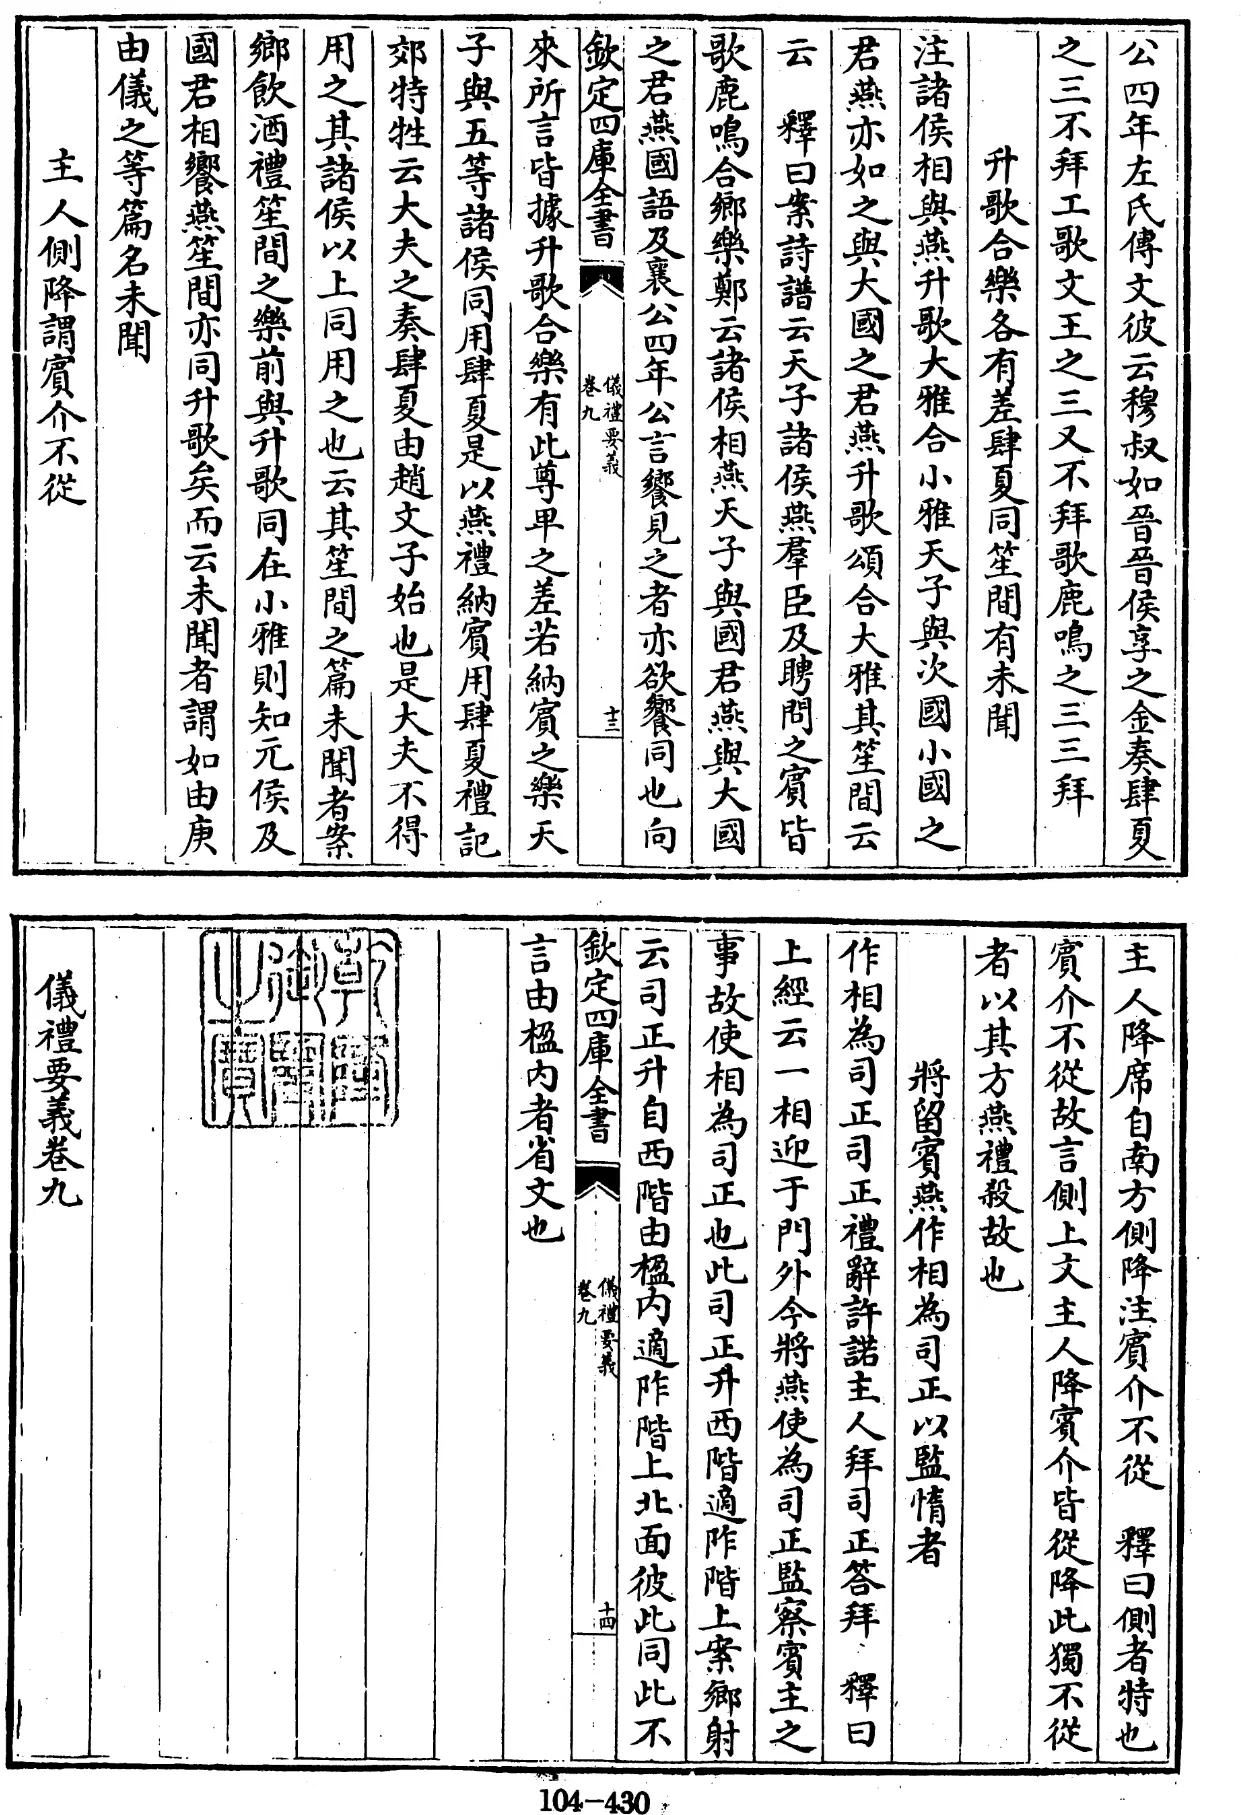 公四年左氏傳文彼云穆叔如晉晉侯享之金奏肆夏
之三不拜工歌文王之三又不拜歌鹿鳴之三三拜
升歌合樂各有差肆夏同笙間有未聞
注諸侯相與燕升歌大雅合小雅天子與次國小國之
君燕亦如之與大國之君燕升歌頌合大雅其笙間云
云 釋曰案詩譜云天子諸侯燕羣臣及聘問之賓皆
歌鹿鳴合鄉樂鄭云諸侯相燕天子與國君燕與大國
之君燕國語及襄公四年公言饗見之者亦欲饗同也向
欽定四庫全書 儀禮要義 卷九 十三
來所言皆據升歌合樂有此尊卑之差若納賓之樂天
子與五等諸侯同用肆夏是以燕禮納賓用肆夏禮記
郊特牲云大夫之奏肆夏由趙文子始也是大夫不得
用之其諸侯以上同用之也云其笙間之篇未聞者案
鄉飲酒禮笙間之樂前與升歌同在小雅則知元侯及
國君相饗燕笙間亦同升歌矣而云未聞者謂如由庚
由儀之等篇名未聞
主人側降謂賓介不從
主人降席自南方側降注賓介不從 釋曰側者特也
賓介不從故言側上文主人降賓介皆從降此獨不從
者以其方燕禮殺故也
將留賓燕作相為司正以監惰者
作相為司正司正禮辭許諾主人拜司正答拜 釋曰
上經云一相迎于門外今將燕使為司正監察賓主之
事故使相為司正也此司正升西階適阼階上案鄉射
云司正升自西階由楹內適阼階上北面彼此同此不
欽定四庫全書 儀禮要義 卷九 十四
言由楹內者省文也
儀禮要義卷九
104-430